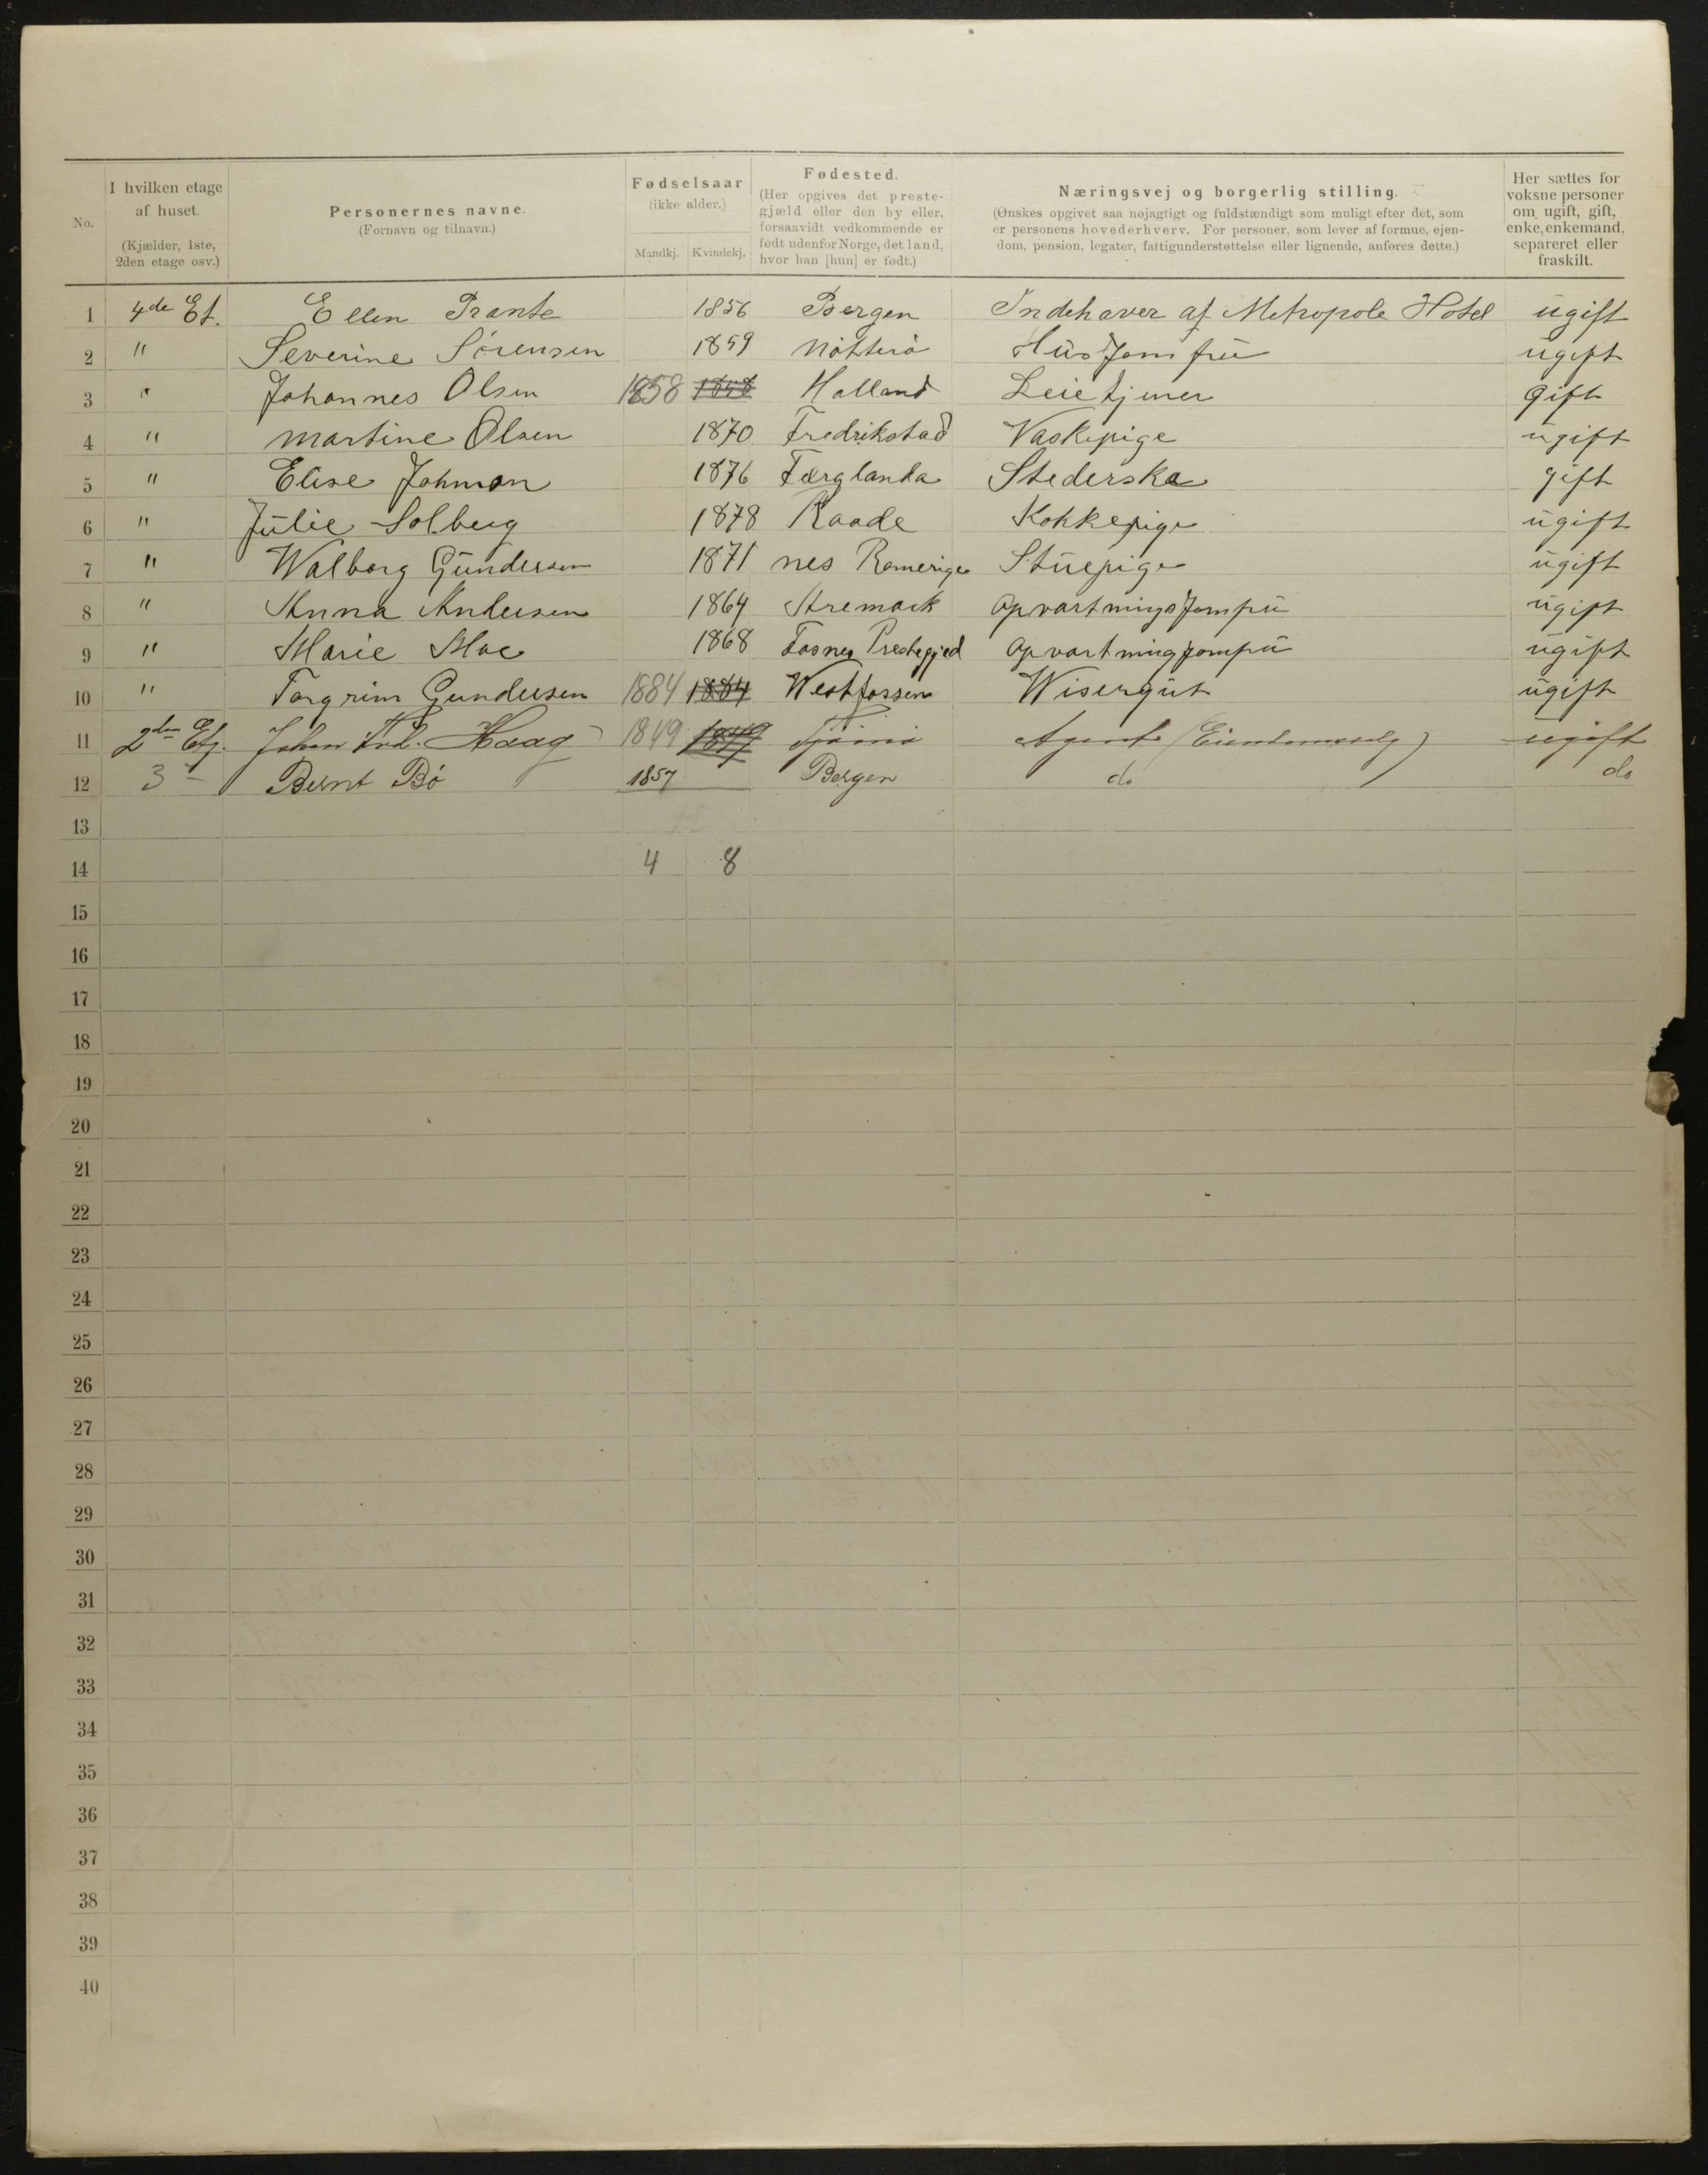 No. I hvilken etage af huset. (Kjælder, 1ste, 2den etage osv.) Personernes navne. (Fornavn og tilnavn.) Fødselsaar (ikke alder.) Mandkj. Kvindekj. Fødested. (Her opgives det prestegjæld eller den by eller, forsaavidt vedkommende er født udenfor Norge, det land, hvor han [hun] er født.) Næringsvej og borgerlig stilling. (Ønskes opgivet saa nøjagtigt og fuldstændigt som muligt efter det, som er personens hovederhverv. For personer, som lever af formue, ejendom, pension, legater, fattigunderstøttelse eller lignende, anføres dette.) Her sættes for voksne personer om ugift, gift, enke, enkemand, separeret eller fraskilt.
1 4de Et. Ellen Prante 1856 Bergen Indehaver af Metropole Hotel ugift
2 " Severine Sörensen 1859 Nötterö Husjomfru ugift
3 " Johannes Olsen 1858 1858 Halland Leietjener gift
4 " Martine Olsen 1870 Fredrikstad Vaskepige ugift
5 " Elise Johnson 1876 Færglanda Stederska gift
6 " Julie Solberg 1878 Raade Kokkepige ugift
7 " Walborg Gundersen 1871 nes Romerige Stuepige ugift
8 " Anna Andersen 1864 Aremark Opvartningsjomfru ugift
9 " Marie Moe 1868 Fosnes Prestegjed Opvartningjomfru ugift
10 " Torgrim Gundersen 1884 1884 Westfossen Wisergut ugift
11 2den Etg. Johan Frd. Haag 1849 1849 Tjømø Agent (Eiendomssalg) ugift
12 3 – Bernt Bö 1857 Bergen do do
13
14 4 8
15
16
17
18
19
20
21
22
23
24
25
26
27
28
29
30
31
32
33
34
35
36
37
38
39
40